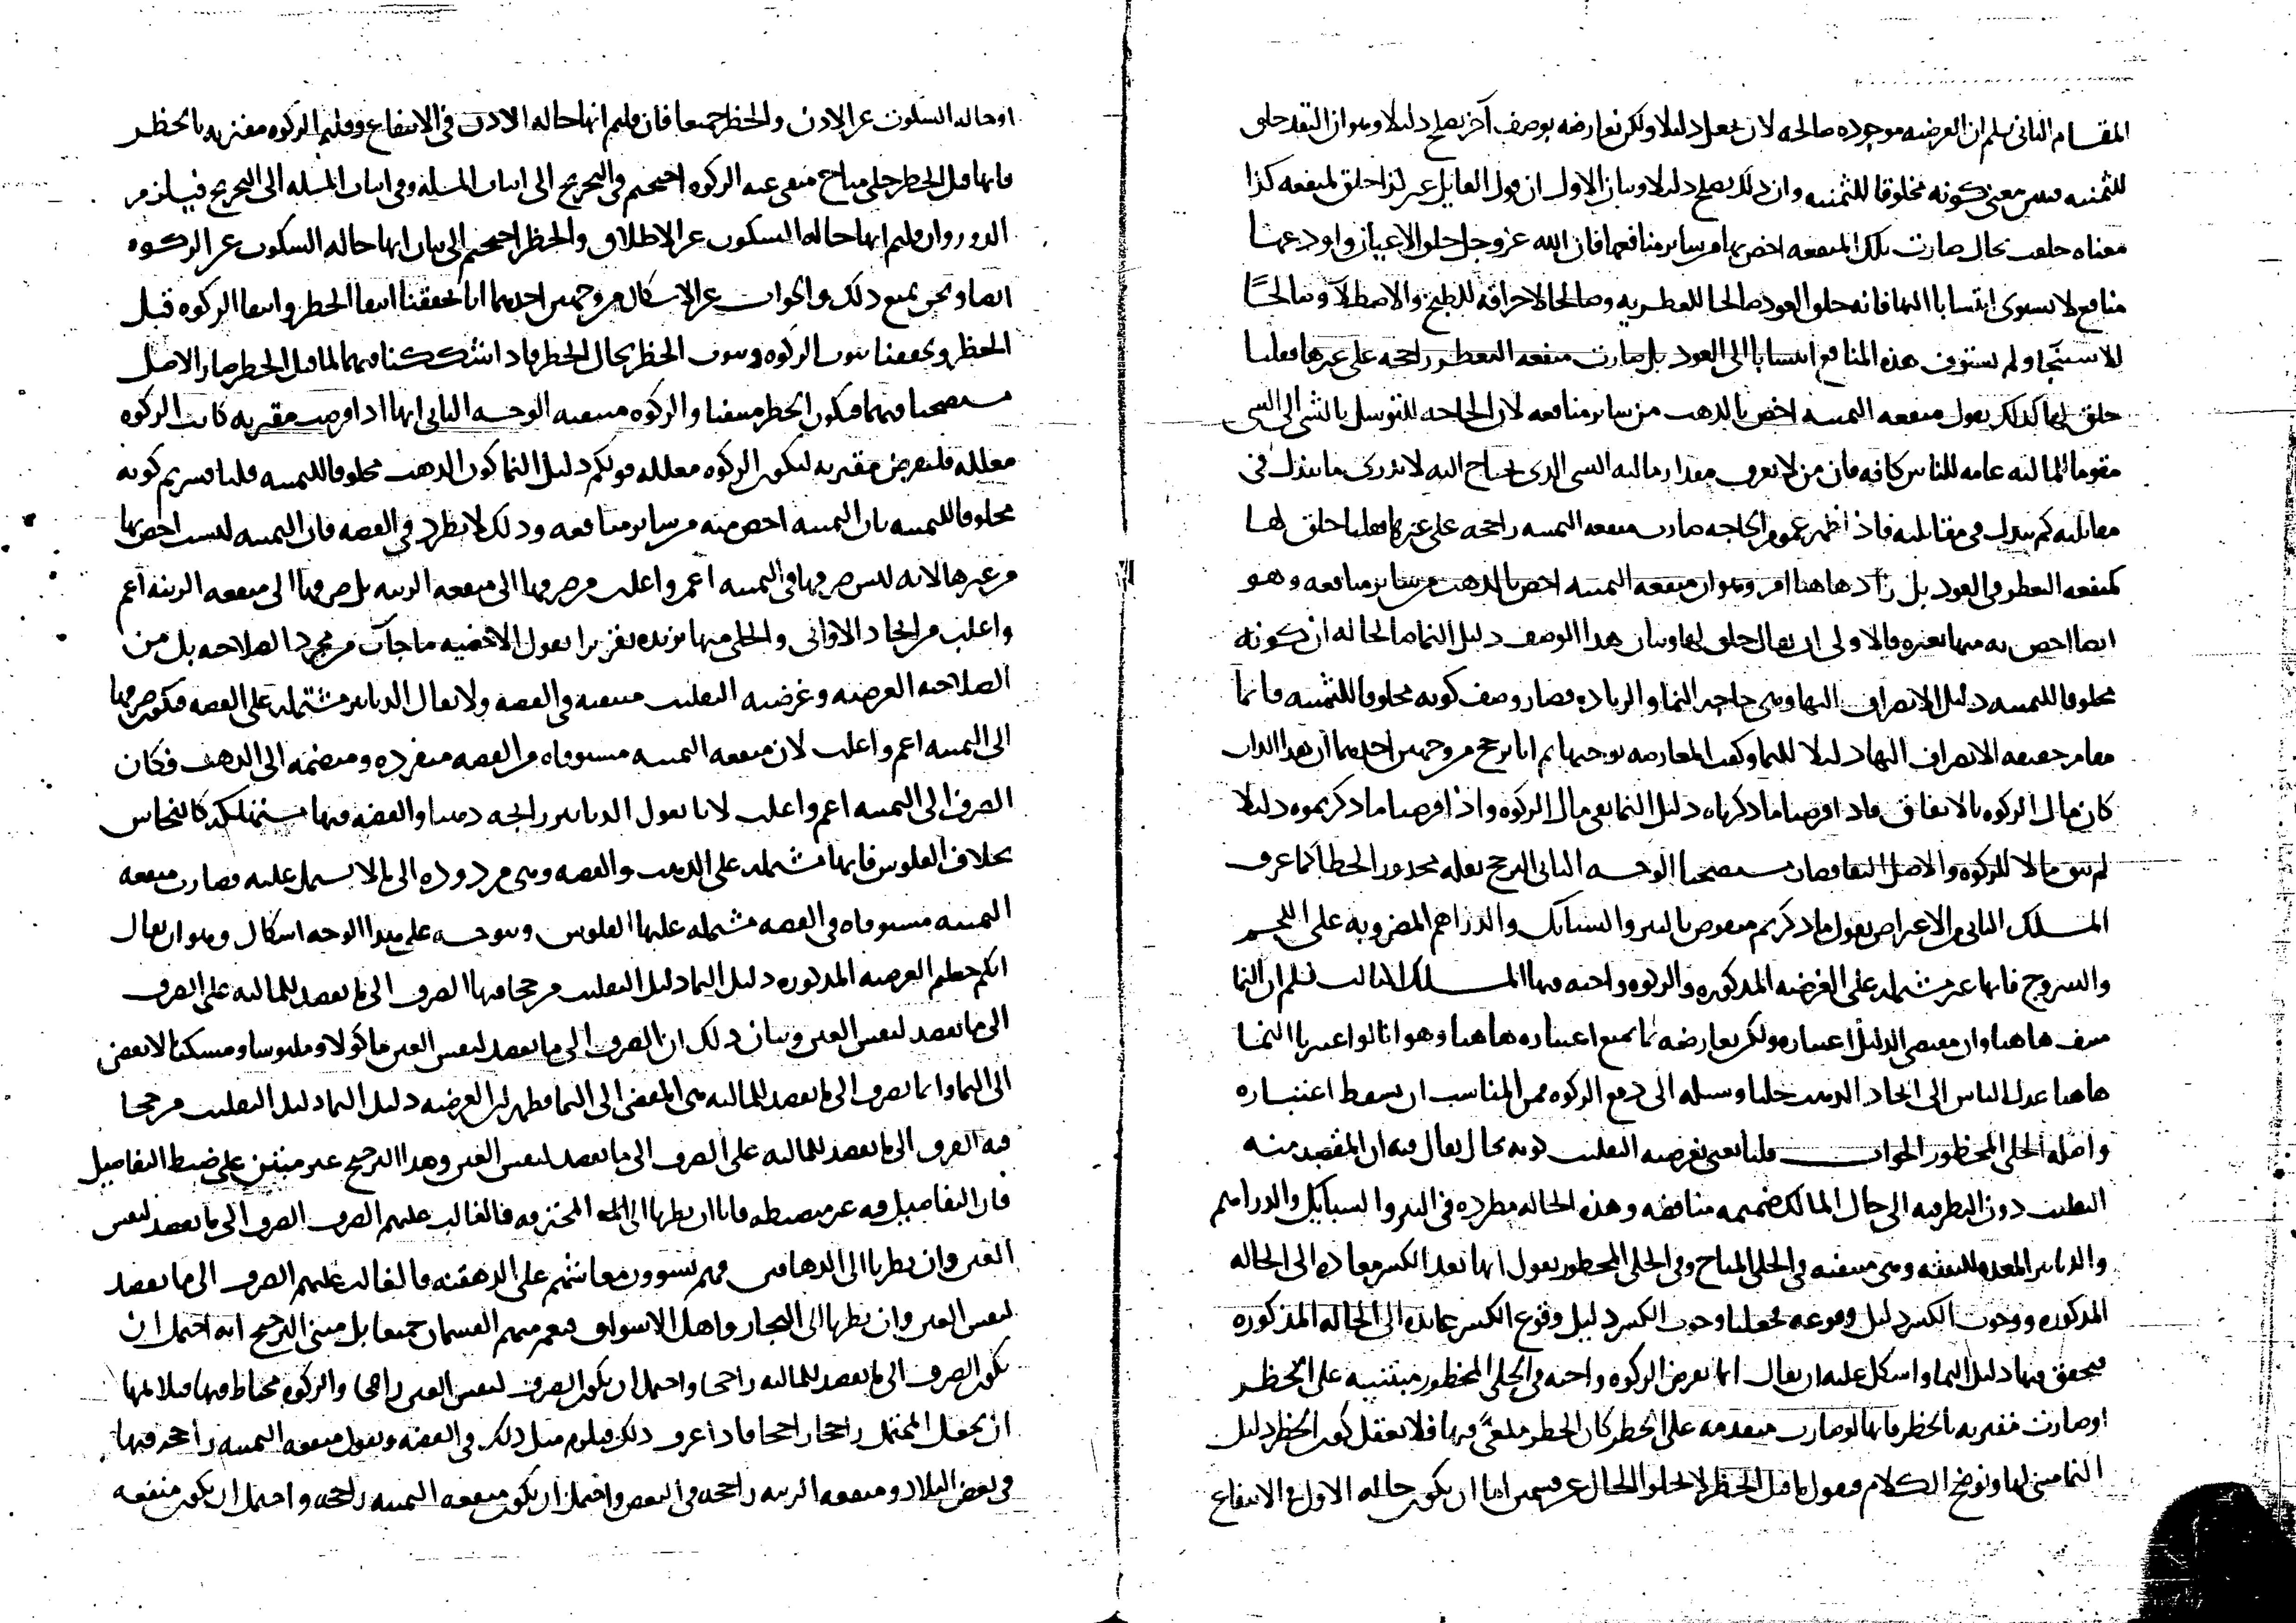 المقام الثاني نسلم ان العرضيه موجوده صالحه لان يجعل دليلا ولكن نعارضه بوصف آخر يصلح دليلا وهو ان النقد خلق
للثمنيه فنبين معنى كونه مخلوقا للثمنيه وان ذلك يصلح دليلا وبيان الاول ان قول القايل عن كذا خلق لمنفعه كذا
معناه خلقت بحال صارت تلك المنفعه اخص بها من ساير منافعها فان الله عز وجل خلق الاعيان واودع عنها
منافع لا تستوى انتسابا اليها فانه خلق العود صالحا للعطريه وصالحا لاحراقه للطبخ والاصطلا وصالحا
للاستنجا ولم تستوف هذه المنافع انتسابا الى العود بل صارت منفعه التعطر راجحه على غيرها فقلنا
خلق لها كذلك نقول منفعه الثمنيه اخص بالذهب من ساير منافعه لان الحاجه للتوسل بالشى الى الشى
مقوما لماليه عامه للناس كافه فان من لا يعرف مقدار ماليه الشى الذى يحتاج اليه لا يدرى ما يبذل فى
مقابلته كم يبذل فى مقابلته فاذا ظهر عموم الحاجه صارت منفعه الثمنيه راجحه على غيرها فقلنا خلق لها
كمنفعه التعطر فى العود بل زاد هاهنا امر وهو ان منفعه الثمنيه اخص بالذهب من ساير منافعه وهو
ايضا اخص به منها بغيره فالاولى ان يقال خلق لها وبيان هذا الوصف دليل النما صالحا له ان كونه
مخلوقا للثمنيه دليل الانصراف اليها وهى حاجه النما والزياده فصار وصف كونه مخلوقا للثمنيه قايما
مقام حقيقه الانصراف اليها دليلا للنما وكفت المعارضه بوجهها ثم انا نرجح من وجهين احدهما ان هذا الذات
كان مال الزكوه بالاتفاق فاذا فرضنا ما ذكرناه دليل النما بقى مال الزكوه واذا فرضنا ما ذكرتموه دليلا
لم يبق مالا للزكوه والاصل البقا فصار مستصحبا الوجه الثانى الترجيح بقله محذور الخطا كما عرف
المسلك الثانى فى الاعتراض نقول ما ذكرتم منقوض بالتبر والسبايك والدراهم المضروبه على اللجم
والسروج فانها غير مشتمله على العرضيه المذكوره والزكوه واجبه فيها المسلك الثالث نسلم ان النما
منتف هاهنا وان مقتضى الدليل اعتباره ولكن نعارضه بما يمنع اعتباره هاهنا وهو انا لو اعتبرنا النما
هاهنا عدل الناس الى اتخاذ الذهب حليا وسيله الى دفع الزكوه فمن المناسب ان يسقط اعتباره
واصله الحلى المحظور الجواب قلنا نعنى بعرضيه التقليب كونه بحال يقال فيه ان المقصد منه
التقليب دون النظر فيه الى حال المالك ضميمه مناقضه وهذه الحاله مطرده فى التبر والسبايك والدراهم
والدنانير المعده للنفقه وهى منتفيه فى الحلى المباح وفى الحلى المحظور نقول انها بعد الكسر معاده الى الحاله
المذكوره ووجوب الكسر دليل وقوعه فجعلنا وجوب الكسر دليل وقوع الكسر عايده الى الحاله المذكوره
فيحقق فيها دليل النما واشكل عليه ان يقال انما نفرض الزكوه واجبه فى الحلى المحظور مبتنيه على الحظر
او صارت مقترنه بالحظر فانها لو صارت متقدمه على الحظر كان الحظر ملغى فيها فلا يعقل كون الحظر دليل
النما مبنى لها ونوضح الكلام فنقول ما قبل الحظر لا يخلو الحال عن قسمين اما ان يكون حاله الاذن فى الانتفاع
او حاله السكوت عن الاذن والحظر جميعا فان قلتم انها حاله الاذن فى الانتفاع وقلتم الزكوه مقترنه بالحظر
فانها قبل الحظر حلى مباح منفى عنه الزكوه احتجتم فى التخريج الى اثبات المسله وفى اثبات المسله الى التخريج فيلزم
الدور وان قلتم انها حاله السكوت عن الاطلاق والحظر احتجتم الى بيان انها حاله السكوت عن الزكوه
ايضا ونحن نمنع ذلك والجواب عن الاشكال من وجهين احدهما انا تحققنا انتفا الحظر وانتفا الزكوه قبل
الحظر وتحققنا ثبوت الزكوه وثبوت الحظر بحال الحظر فاذا تشككنا فيهما لما قبل الحظر صار الاصل
مستصحبا فيهما فيكون الحظر منتفيا والزكوه منتفيه الوجه الثانى انها اذا فرضت مقترنه كانت الزكوه
معلله فلنفرض مقترنه لتكون الزكوه معلله قولكم دليل النما كون الذهب مخلوقا للثمنيه قلنا فسرتم كونه
مخلوقا للثمنيه بان الثمنيه اخص منه من ساير منافعه وذلك لا يطرد فى الفضه فان الثمنيه ليست اخص بها
من غيرها لانه ليس صرفها فى الثمنيه اعم واغلب من صرفها الى منفعه الزينه بل صرفها الى منفعه الزينه اعم
واغلب من اتخاذ الاوانى والحلى منها نزيده تقريرا نقول الاخصيه ما جات من مجرد الصلاحيه بل من
الصلاحيه العرضيه وعرضيه التقليب منتفيه فى الفضه ولا يقال الدنانير مشتمله على الفضه فيكون صرفها
الى الثمنيه اعم واغلب لان منفعه الثمنيه مستوفاه من الفضه منفرده ومنضمه الى الذهب فكان
الصرف الى الثمنيه اعم واغلب لانا نقول الدنانير رايجه ذهبا والفضه فيها مستهلكه كالنحاس
بخلاف الفلوس فانها مشتمله على الذهب والفضه وهى مردوده الى ما لا يشتمل عليه فصارت منفعه
الثمنيه مستوفاه فى الفضه مشتمله عليها الفلوس ويتوجه على هذا الوجه اشكال وهو ان يقال
انكم جعلتم العرضيه المذكوره دليل النما دليل التقليب مرجحا فيها الصرف الى ما يقصد للماليه على الصرف
الى ما يقصد لنفس العين وبيان ذلك ان الصرف الى ما يقصد لنفس العين ماكولا وملبوسا ومسكنا لا يفضى
الى النما وانما تصرف الى ما يقصد للماليه هى المفضى الى النما فظهر ان العرضيه دليل النما دليل التقليب مرجحا
فيه الصرف الى ما يقصد للماليه على الصرف الى ما يقصد لنفس العين وهذا الترجيح غير مبتنى على ضبط التفاصيل
فان التفاصيل فيه غير منضبطه فانا ان نظرنا الى المحترفه فالغالب عليهم الصرف الى ما يقصد لنفس
العين وان نظرنا الى الدهاقين فهم يسوون معاشهم على الدهقنه فالغالب عليهم الصرف الى ما يقصد
لنفس العين وان نظرنا الى التجار واهل الاسواق فمعهم القسمان جميعا بل مبنى الترجيح انه احتمل ان
يكون الصرف الى ما يقصد للماليه راجحا واحتمل ان يكون الصرف لنفس العين راجحا والزكوه محتاط فيها
ان يجعل المحتمل راجحا راجحا فاذا عرف ذلك فيلزم مثل ذلك فى الفضه ونقول منفعه الثمنيه راجحه فيها
فى بعض البلاد ومنفعه الزينه راجحه فى البعض واحتمل ان يكون منفعه الثمنيه راجحه واحتمل ان يكون منفعه